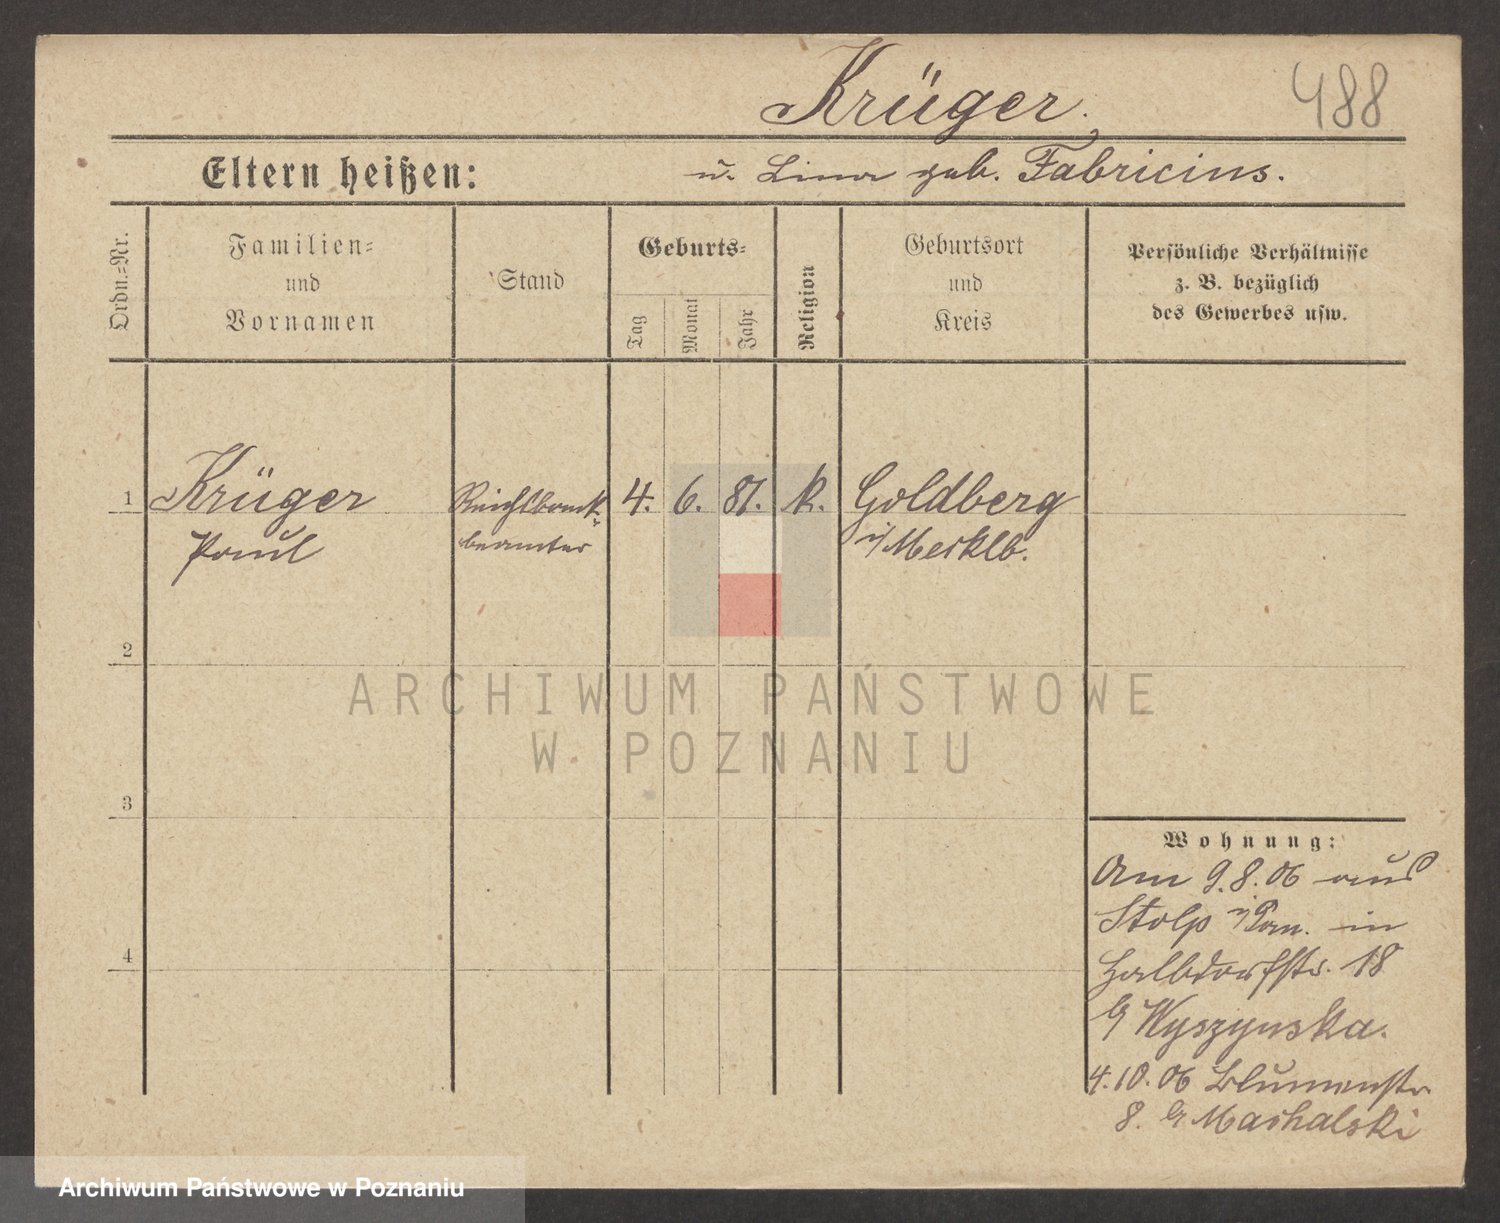 Krüger.
488
Eltern heißen:
u. Lina geb. Fabricius.
Ordn.=Nr.
Familien=
und
Vornamen
Stand
Geburts=
Tag
Monat
Jahr
Religion
Geburtsort
und
Kreis
Persönliche Verhältnisse
z. B. bezüglich
des Gewerbes usw.
1
Krüger
Paul
Reichsbank-
beamter
4.
6.
81.
k.
Goldberg
i/Mecklb.
2
3
4
Wohnung:
Am 9.8.06 aus
Stolp i/Pom. in
Halbdorfstr. 18
b/ Wyszynska.
4.10.06 Blumenstr
8. b/ Machalski
ARCHIWUM PAŃSTWOWE
W POZNANIU
Archiwum Państwowe w Poznaniu